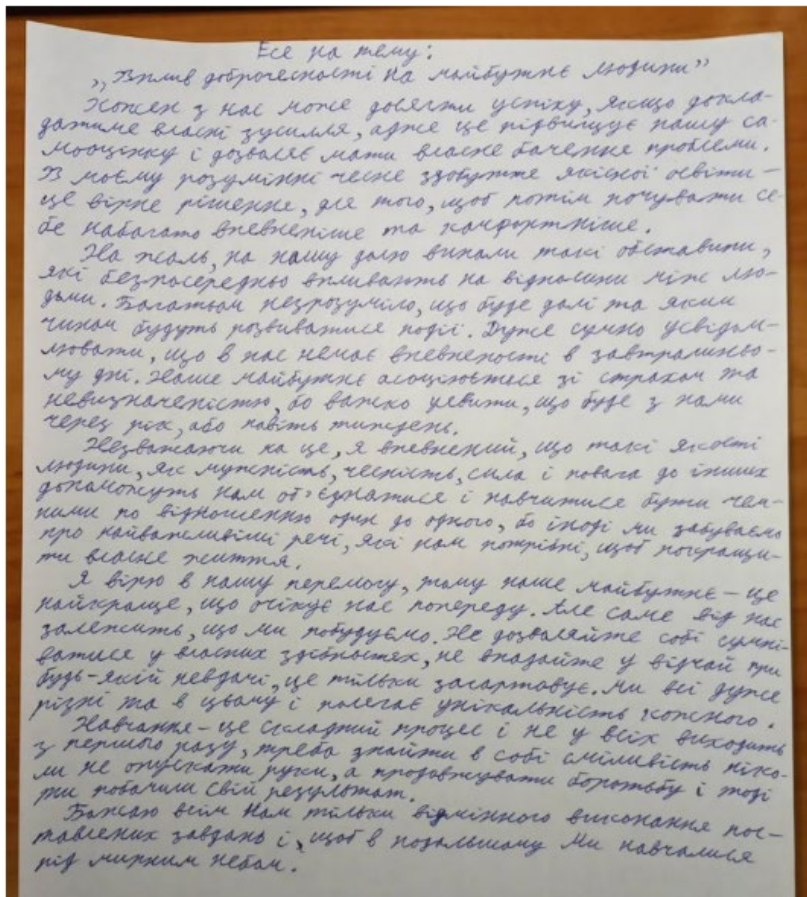 Есе на тему:
„Вплив доброчесності на майбутнє людини"
Кожен з нас може досягти успіху, якщо докла-
датиме власні зусилля, адже це підвищує нашу са-
мооцінку і дозволяє мати власне бачення проблеми.
В моєму розумінні чесне здобуття якісної освіти –
це вірне рішення, для того, щоб потім почувати се-
бе набагато впевненіше та комфортніше.
На жаль, на нашу долю випали такі обставини,
які безпосередньо впливають на відносини між лю-
дьми. Багатьом незрозуміло, що буде далі та яким
чином будуть розвиватися події. Дуже сумно усвідом-
лювати, що в нас немає впевненості в завтрашньо-
му дні. Наше майбутнє асоціюється зі страхом та
невизначеністю, бо важко уявити, що буде з нами
через рік, або навіть тиждень.
Незважаючи на це, я впевнений, що такі якості
людини, як мужність, чесність, сила і повага до інших
допоможуть нам об'єднатися і навчитися бути чем-
ними по відношенню один до одного, бо іноді ми забуваємо
про найважливіші речі, які нам потрібні, щоб покращи-
ти власне життя.
Я вірю в нашу перемогу, тому наше майбутнє – це
найкраще, що очікує нас попереду. Але саме від нас
залежить, що ми побудуємо. Не дозволяйте собі сумні-
ватися у власних здібностях, не впадайте у відчай при
будь-якій невдачі, це тільки загартовує. Ми всі дуже
різні та в цьому і полягає унікальність кожного.
Навчання – це складний процес і не у всіх виходить
з першого разу, треба знайти в собі сміливість ніко-
ли не опускати руки, а продовжувати боротьбу і тоді
ти побачиш свій результат.
Бажаю всім нам тільки відмінного виконання пос-
тавлених завдань і, щоб в подальшому ми навчалися
під мирним небом.